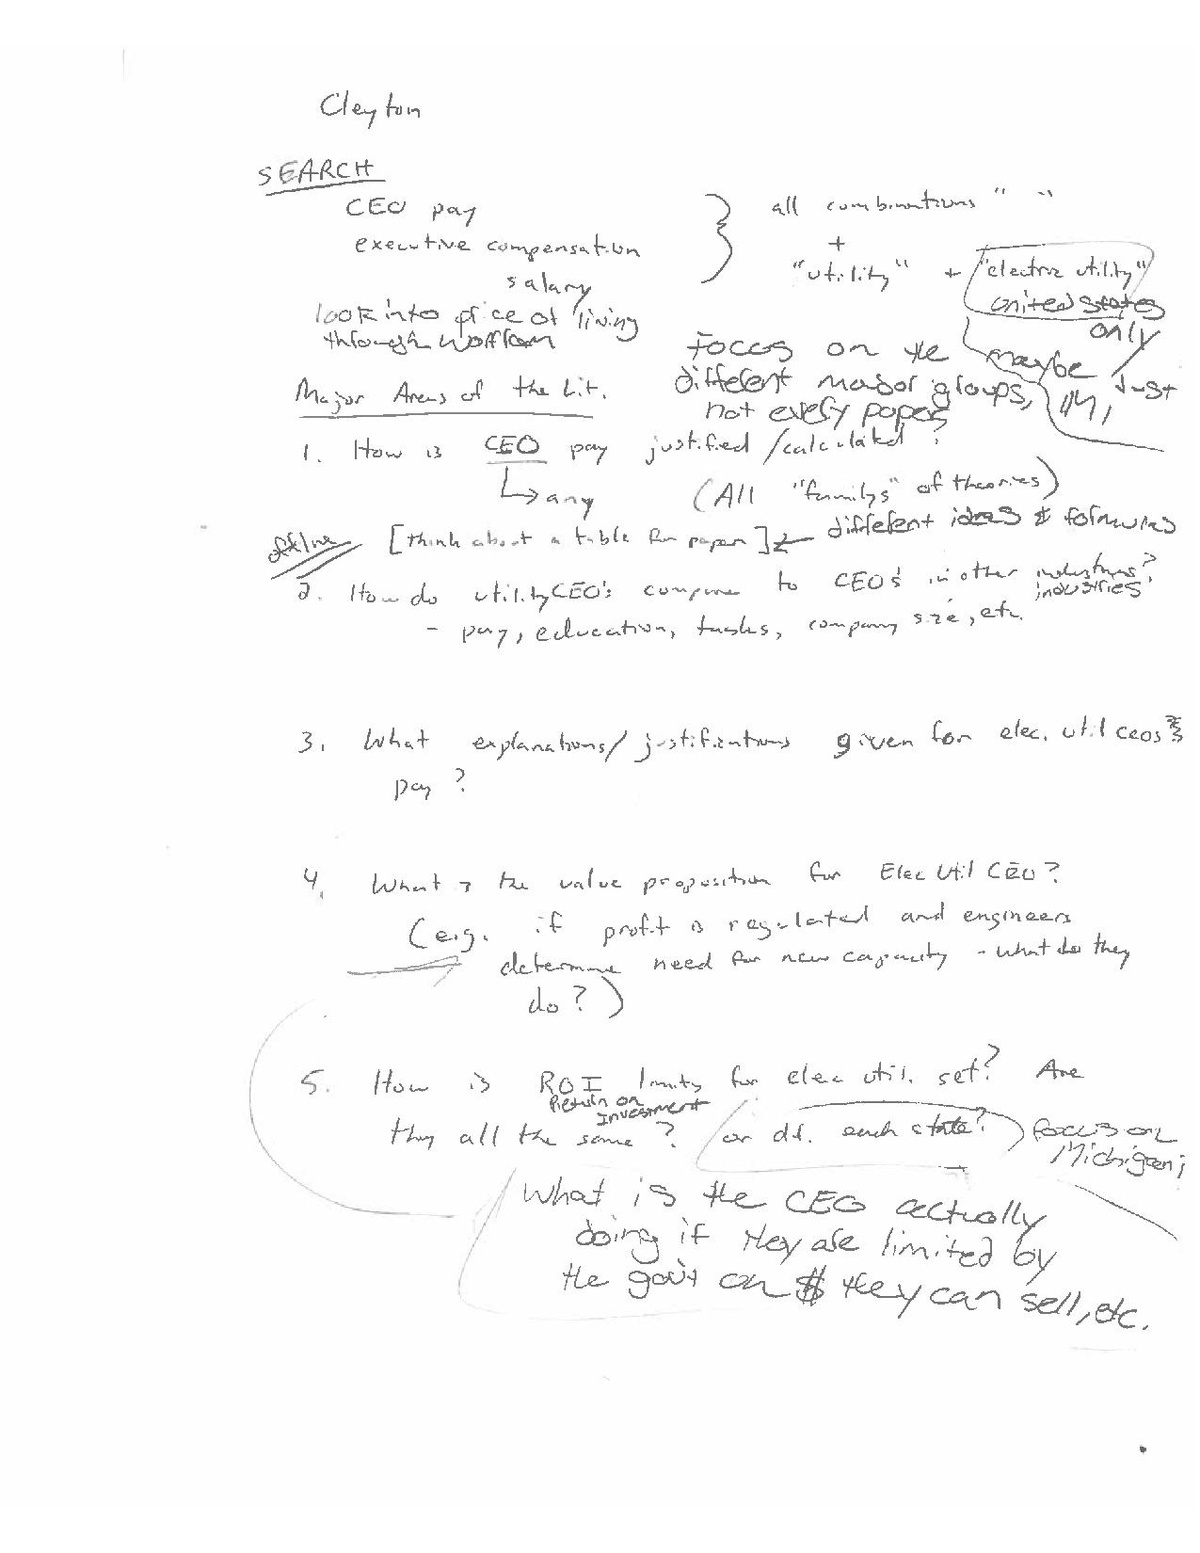 Cleyton
SEARCH
CEO pay
executive compensation
salary
} all combinations " "
+
"utility" + "electric utility"
united states
only
look into price of living
through wolfram
Focus on the
different major groups,
not every paper
maybe just
MI,
Major Areas of the Lit.
1. How is CEO pay justified/calculated?
↳ any (All "familys" of theories)
offline [think about a table for paper] ← different ideas & formulas
2. How do utility CEO's compare to CEO's in other industries?
industries
- pay, education, tasks, company size, etc.
3. What explanations/justifications given for elec. util ceos
pay?
4. What is the value proposition for Elec Util CEO?
(e.g. if profit is regulated and engineers
determine need for new capacity - what do they
do?)
5. How is ROI limits for elec util. set? Are
Return on
Investment
they all the same? or df. each state? focus on
Michigan;
What is the CEO actually
doing if they are limited by
the gov't on $ they can sell, etc.